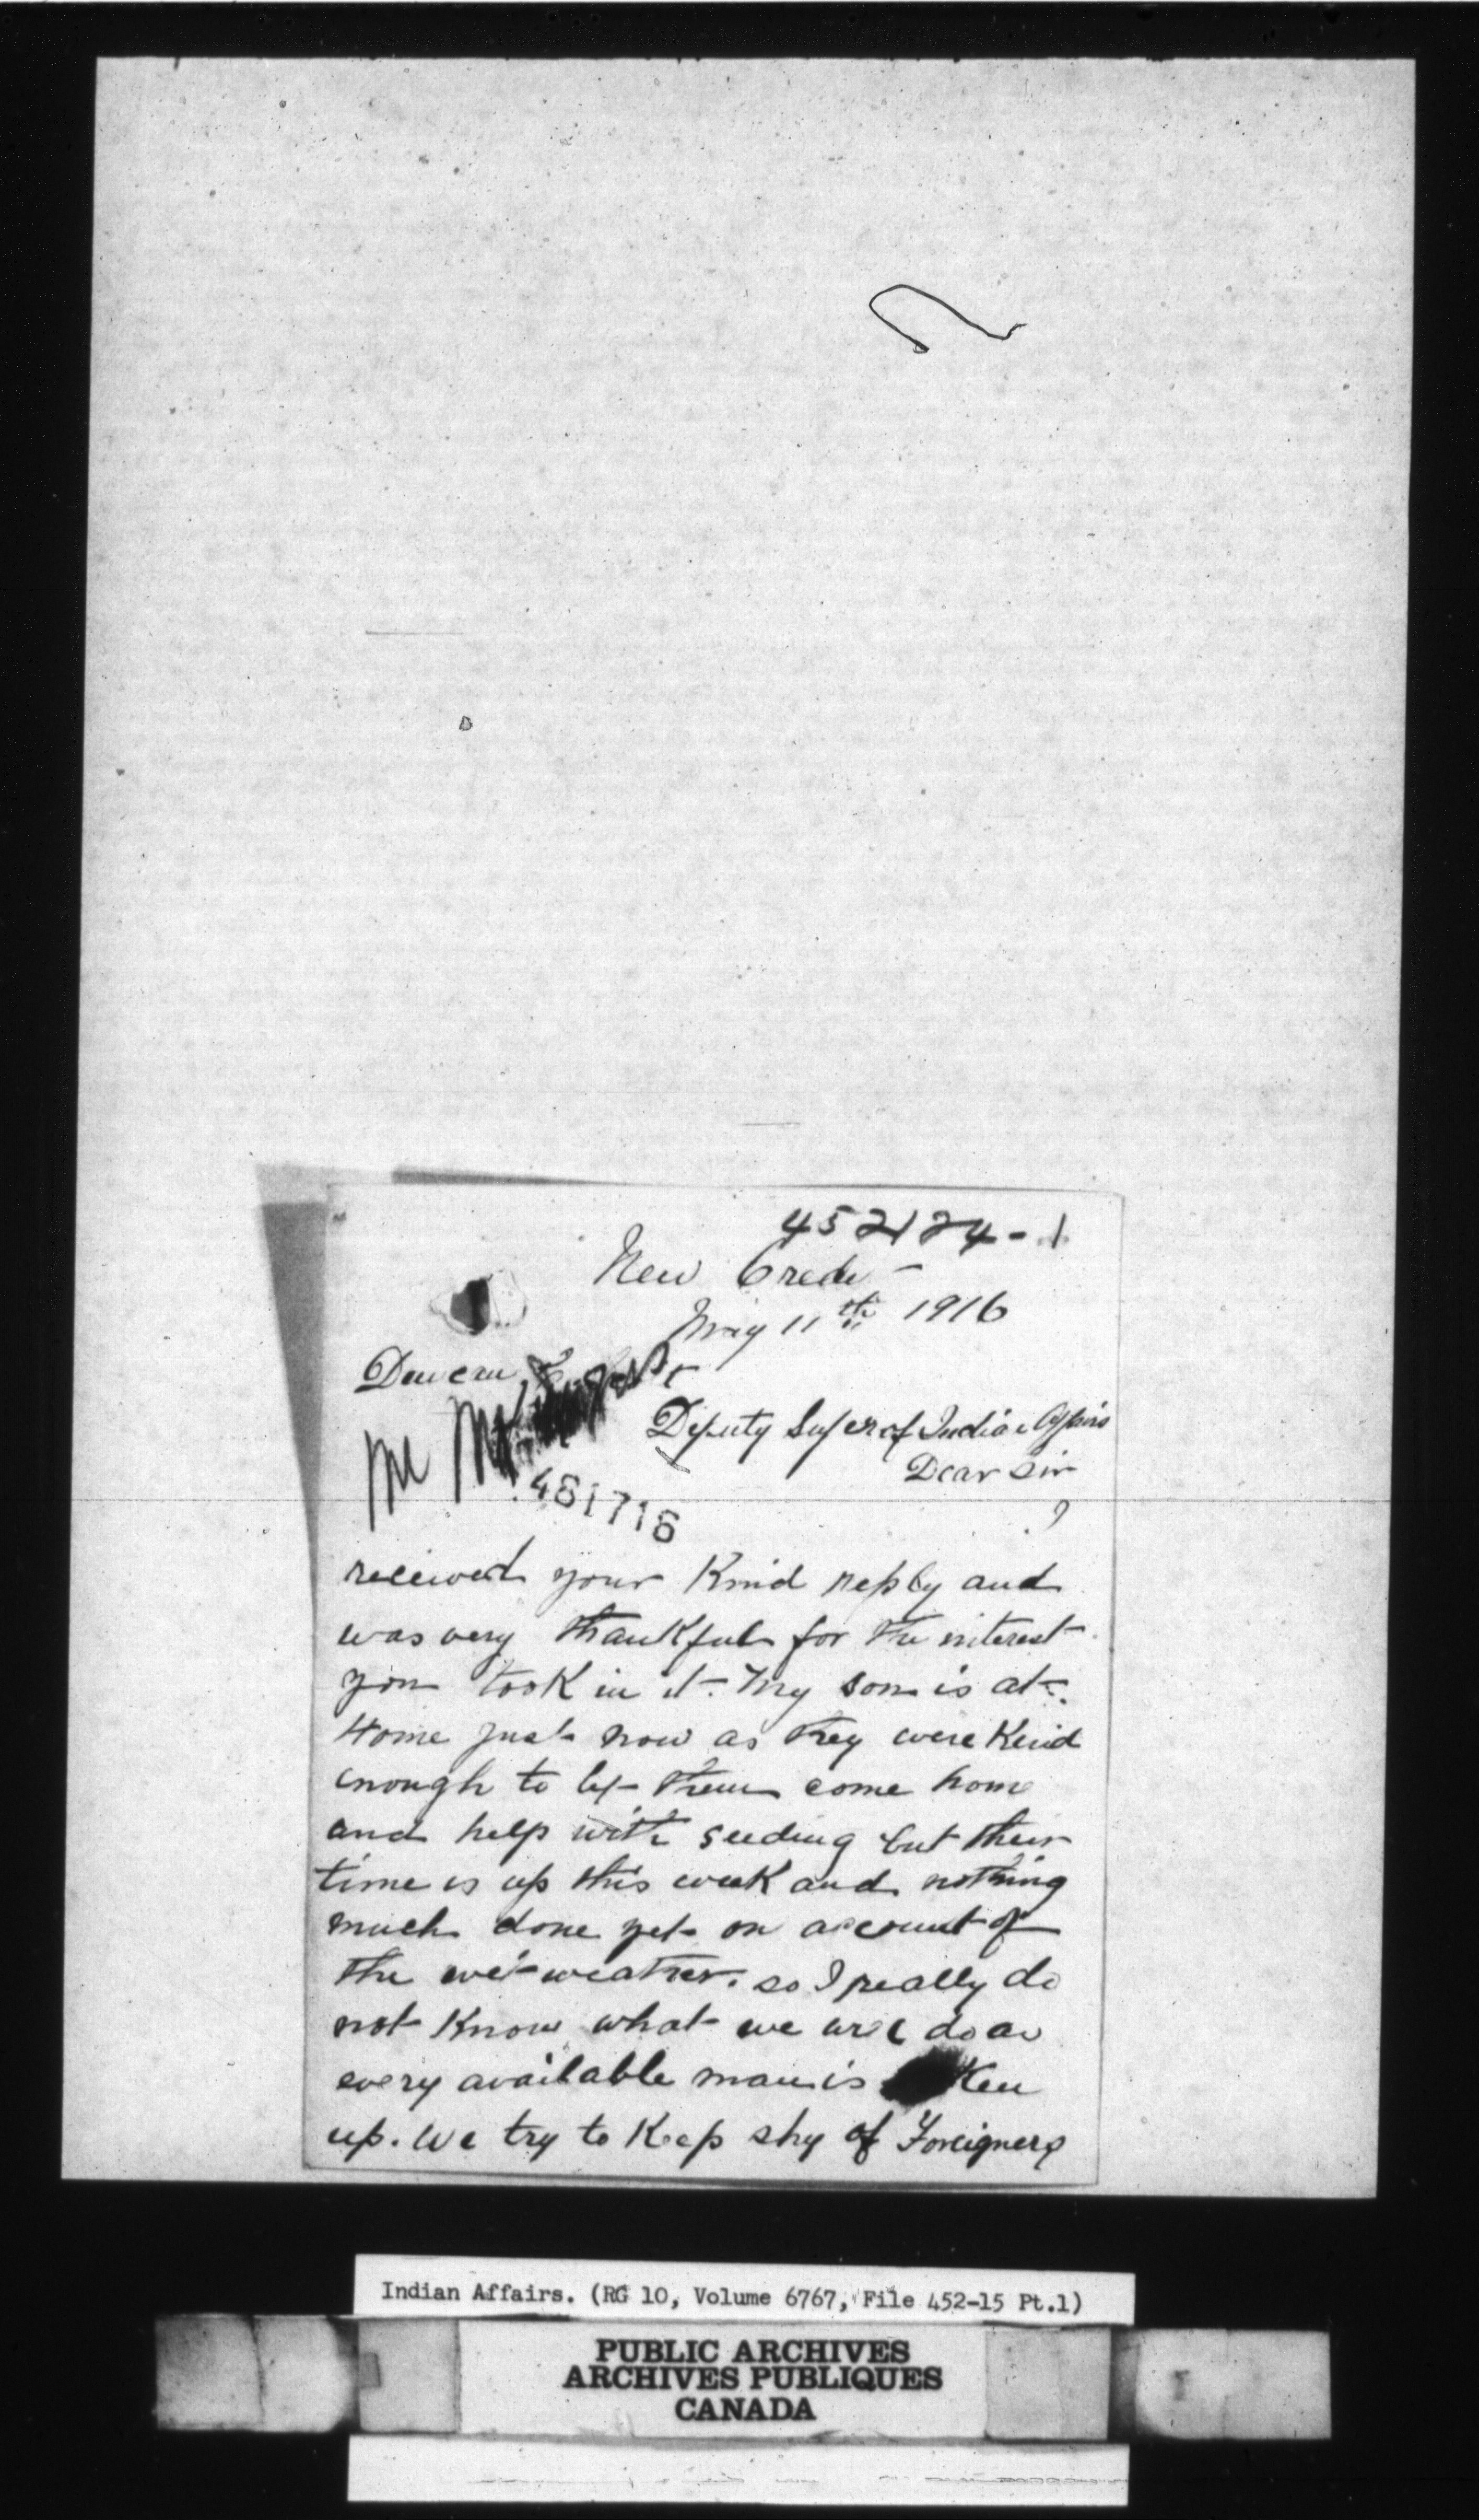 452124-1
New Credit
May 11th 1916
Duncan
Deputy Super of Indian Affairs
Dear Sir
481716
I
received your Kind reply and
was very thankful for the interest
you took in it. My son is at
Home just now as they were Kind
enough to let them come home
and help with seeding but their
time is up this week and nothing
much done yet on account of
the wet weather. so I really do
not Know what we will do as
every available man is
up. We try to Keep shy of Foreigners
Indian Affairs. (RG 10, Volume 6767, File 452-15 Pt.1)
PUBLIC ARCHIVES
ARCHIVES PUBLIQUES
CANADA